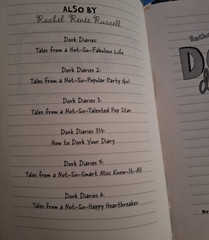 ALSO BY
Rachel Renée Russell
Dork Diaries:
Tales from a Not-So-Fabulous Life
Dork Diaries 2:
Tales from a Not-So-Popular Party Girl
Dork Diaries 3:
Tales from a Not-So-Talented Pop Star
Dork Diaries 3½:
How to Dork Your Diary
Dork Diaries 4:
Tales from a Not-So-Smart Miss Know-It-All
Dork Diaries 6:
Tales from a Not-So-Happy Heartbreaker
Rache